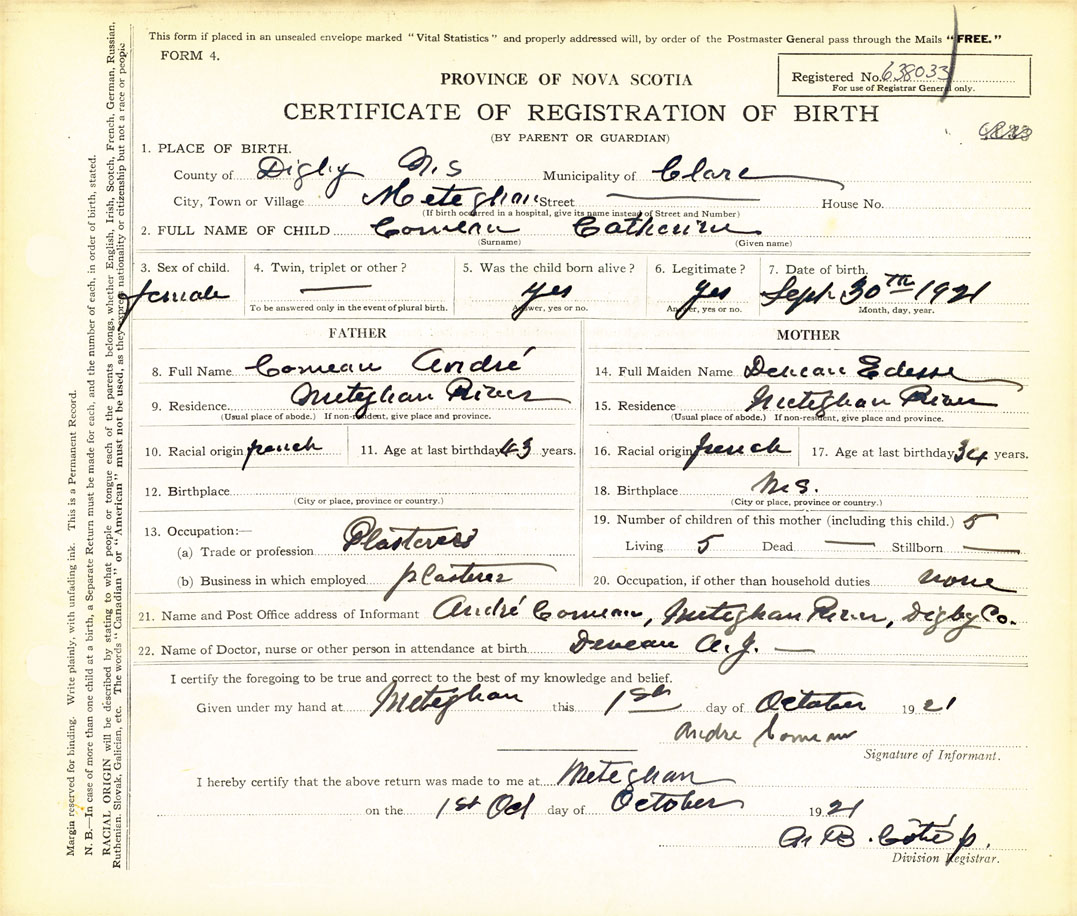 This form if placed in an unsealed envelope marked "Vital Statistics" and properly addressed will, by order of the Postmaster General pass through the Mails "FREE."
FORM 4.
PROVINCE OF NOVA SCOTIA
Registered No. 638033
For use of Registrar General only.
CERTIFICATE OF REGISTRATION OF BIRTH
(BY PARENT OR GUARDIAN)
1. PLACE OF BIRTH.
County of Digby N.S Municipality of Clare
City, Town or Village Meteghan Street House No.
(If birth occurred in a hospital, give its name instead of Street and Number)
2. FULL NAME OF CHILD Comeau Catherine
(Surname) (Given name)
3. Sex of child. 4. Twin, triplet or other? 5. Was the child born alive? 6. Legitimate? 7. Date of birth.
female — yes yes Sept 30TH 1921
To be answered only in the event of plural birth. Answer, yes or no. Answer, yes or no. Month, day, year.
FATHER
8. Full Name Comeau André
9. Residence Meteghan River
(Usual place of abode.) If non-resident, give place and province.
10. Racial origin french 11. Age at last birthday 43 years.
12. Birthplace
(City or place, province or country.)
13. Occupation:—
(a) Trade or profession Plasterers
(b) Business in which employed plasterer
MOTHER
14. Full Maiden Name Deveau Edesse
15. Residence Meteghan River
(Usual place of abode.) If non-resident, give place and province.
16. Racial origin french 17. Age at last birthday 34 years.
18. Birthplace N.S.
(City or place, province or country.)
19. Number of children of this mother (including this child.) 5
Living 5 Dead — Stillborn —
20. Occupation, if other than household duties none
21. Name and Post Office address of Informant André Comeau, Meteghan River, Digby Co.
22. Name of Doctor, nurse or other person in attendance at birth Deveau A.J. —
I certify the foregoing to be true and correct to the best of my knowledge and belief.
Given under my hand at Meteghan this 1st day of October 1921
Andre Comeau
Signature of Informant.
I hereby certify that the above return was made to me at Meteghan
on the 1st Oct day of October 1921
Division Registrar.
Margin reserved for binding. Write plainly, with unfading ink. This is a Permanent Record.
N. B.—In case of more than one child at a birth, a Separate Return must be made for each, and the number of each, in order of birth, stated.
RACIAL ORIGIN will be described by stating to what people or tongue each of the parents belongs, whether English, Irish, Scotch, French, German, Russian,
Ruthenian, Slovak, Galician, etc. The words "Canadian" or "American" must not be used, as they express nationality or citizenship but not a race or people